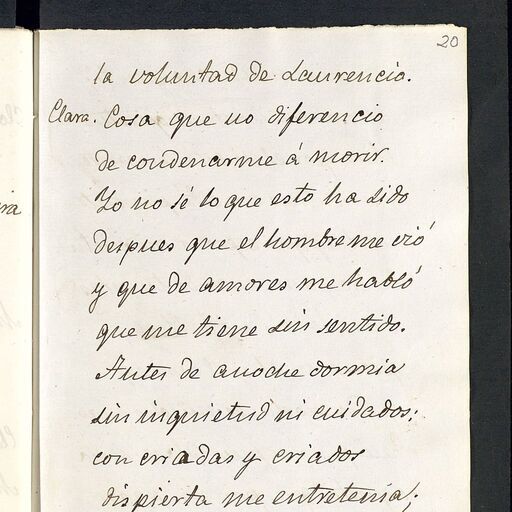 20
la voluntad de Laurencio.
Clara. Cosa que no diferencio
de condenarme á morir.
Yo no sé lo que esto ha sido
despues que el hombre me vió
y que de amores me habló
que me tiene sin sentido.
Antes de anoche dormia
sin inquietud ni cuidados;
con criadas y criados
dispierta me entretenia;
ra